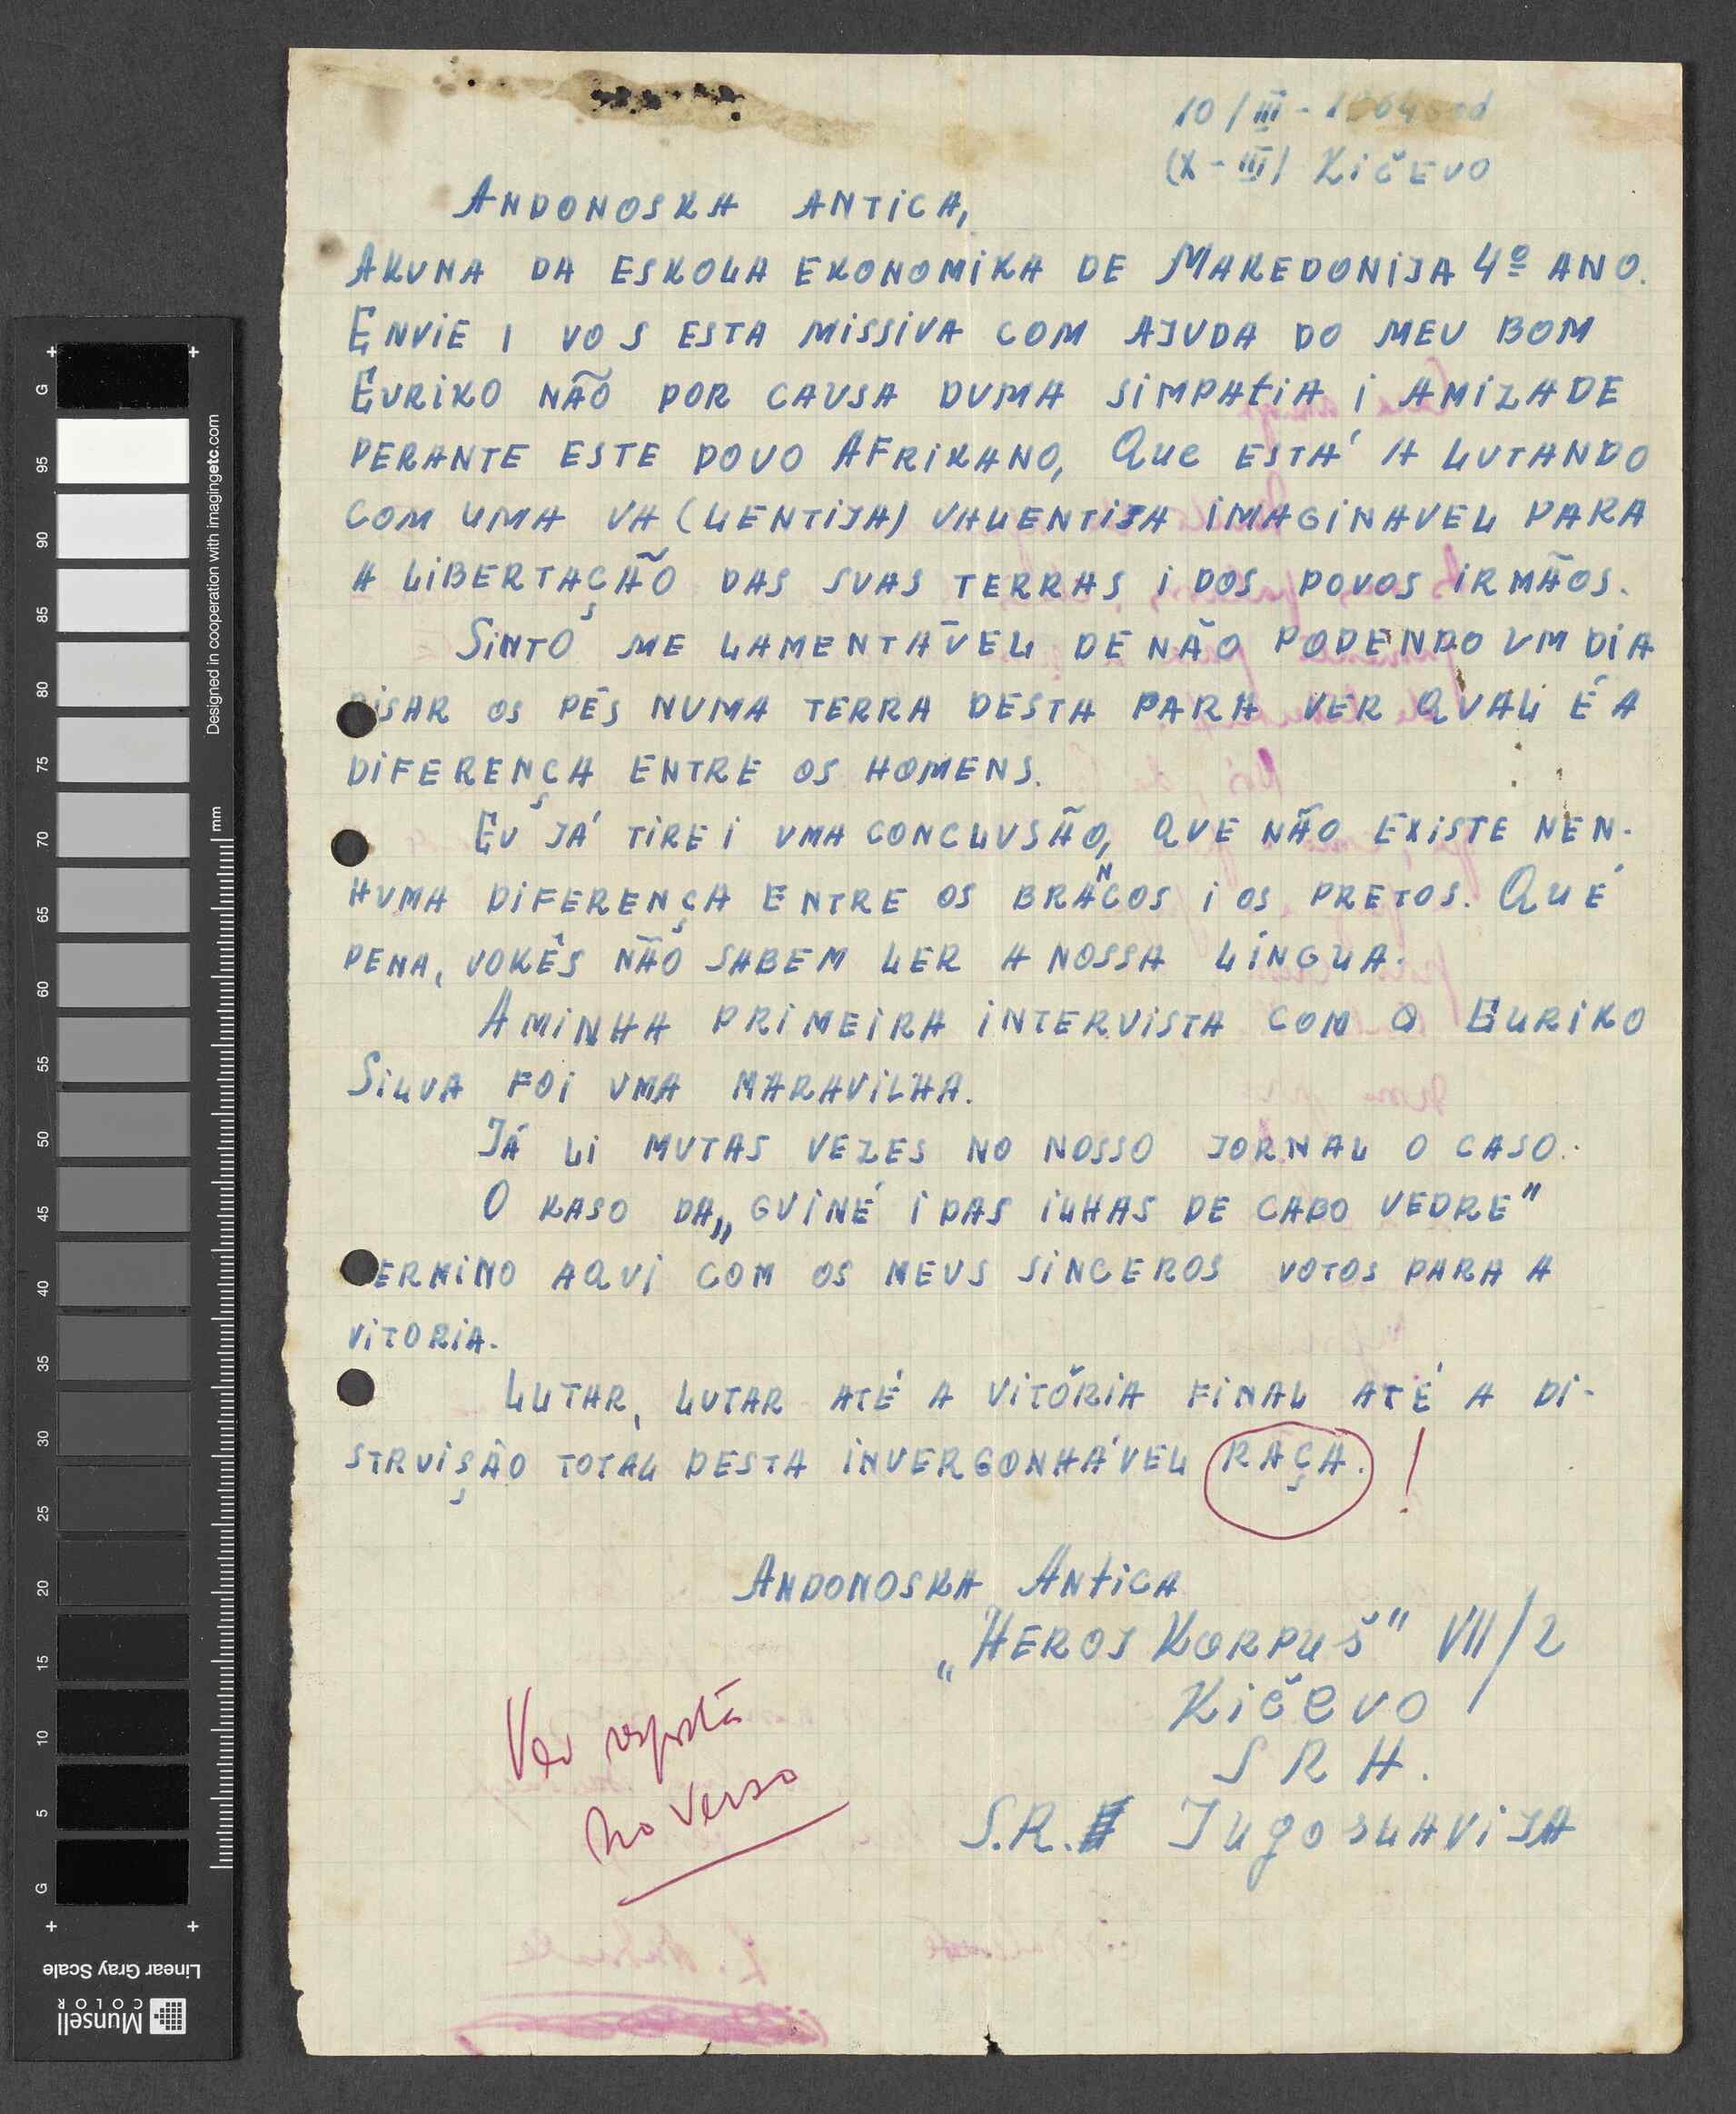 10/III - 1964 god
(X-III) Kičevo
ANDONOSKA ANTICA,
AKUNA DA ESKOLA EKONOMIKA DE MAKEDONIJA 4º ANO.
ENVIE I VOS ESTA MISSIVA COM AJUDA DO MEU BOM
EURIKO NÃO POR CAUSA DUMA SIMPAtiA i AMIZADE
PERANTE ESTE POVO AFRIKANO, QUE ESTÁ A LUTANDO
COM UMA VA (LENTIJA) VALENTIJA IMAGINAVEL PARA
A LIBERTAÇÃO DAS SUAS TERRAS i DOS POVOS IRMÃOS.
SINTO ME LAMENTÁVEL DE NÃO PODENDO UM DIA
PISAR OS PÉS NUMA TERRA DESTA PARA VER QUAL É A
DIFERENÇA ENTRE OS HOMENS.
EU JÁ TIREI UMA CONCLUSÃO, QUE NÃO EXISTE NEN-
HUMA DIFERENÇA ENTRE OS BRANCOS i OS PRETOS. QUÉ
PENA, VOKÊS NÃO SABEM LER A NOSSA LÍNGUA.
AMINHA PRIMEIRA INTERVISTA COM O EURIKO
SILVA FOI UMA MARAVILHA.
JÁ LI MUTAS VEZES NO NOSSO JORNAL O CASO.
O KASO DA „GUINÉ i DAS ILHAS DE CABO VEDRE"
TERMINO AQUI COM OS MEUS SINCEROS VOTOS PARA A
VITORIA.
LUTAR, LUTAR ATÉ A VITÓRIA FINAL ATÉ A DI-
STRUIÇÃO TOTAL DESTA INVERGONHÁVEL RAÇA. !
ANDONOSKA ANtiCA
„HEROJ KORPUŠ" VII/2
Kičevo
S R H.
S.R. JugoslAViJA
Ver resposta
no verso
Designed in cooperation with imagingetc.com
mm
G 95 90 85 80 75 70 65 60 55 50 45 40 35 30 25 20 15 10 5 G
Linear Gray Scale
Munsell
COLOR